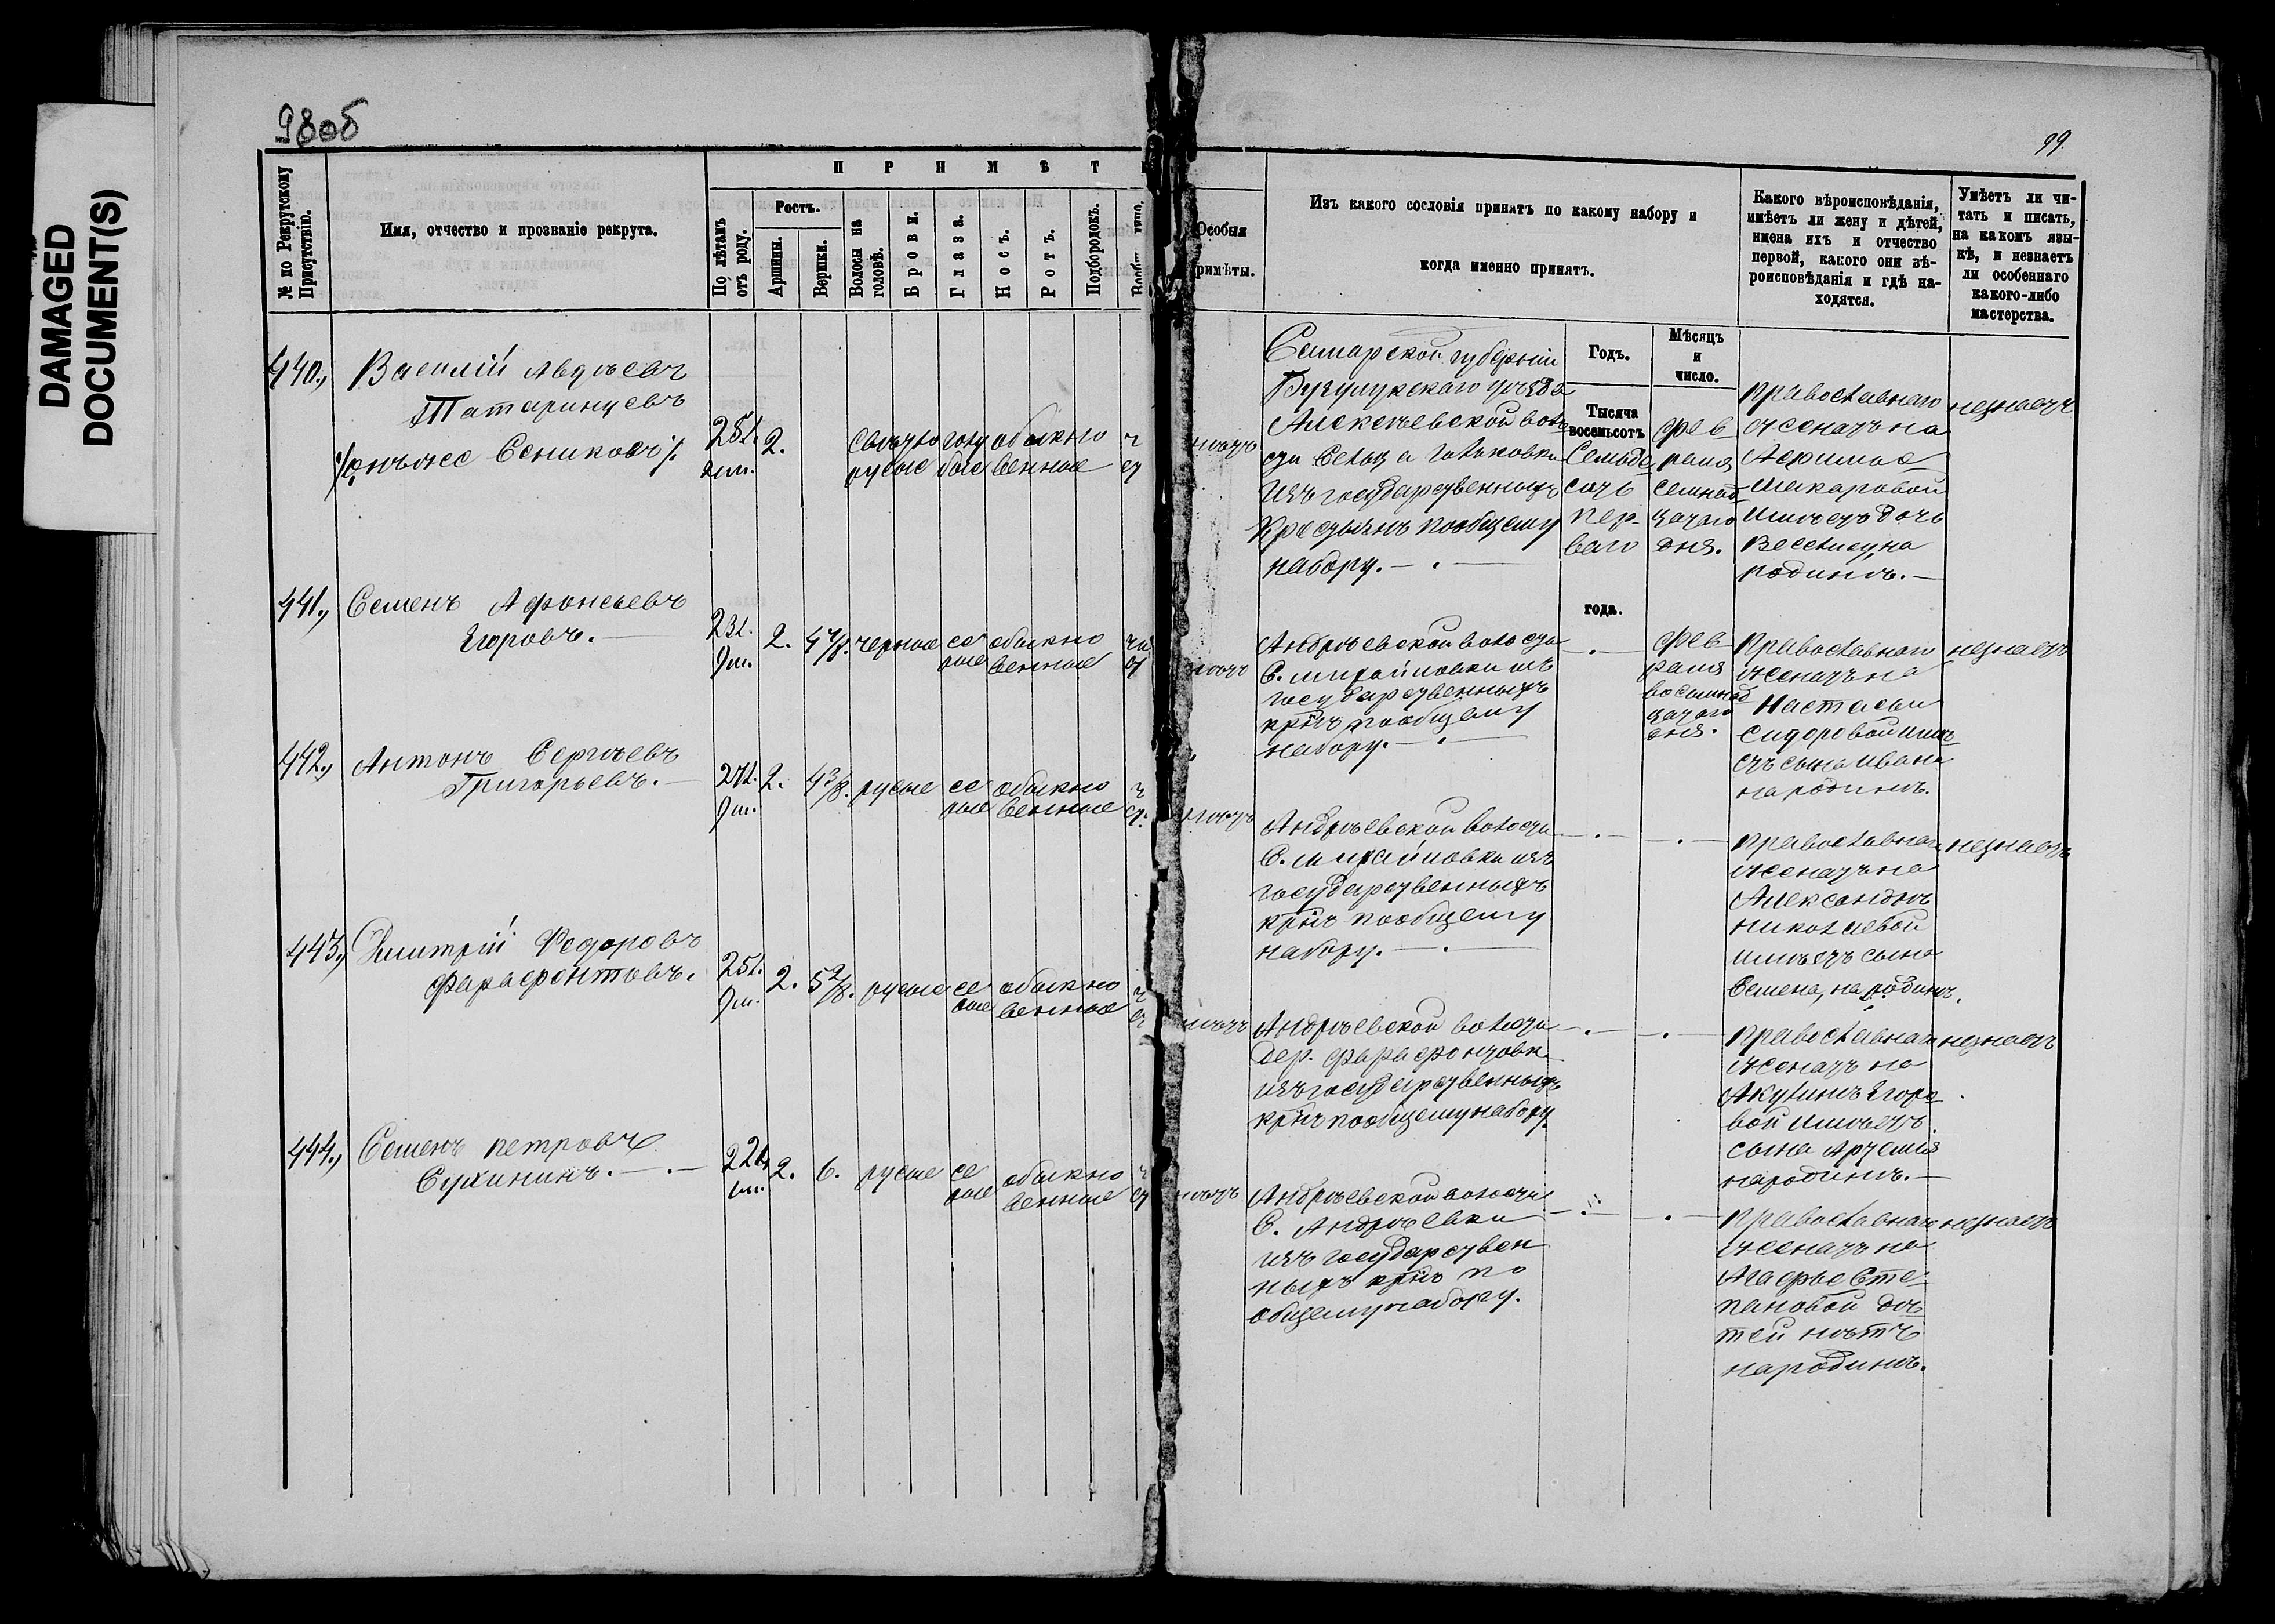 DAMAGED
DOCUMENT(S)
98об
99.
№ по Рекрутскому
Присутствію.
Имя, отчество и прозваніе рекрута.
ПРИМѢТ
По лѣтамъ
отъ роду.
Ростъ.
Аршины.
Вершки.
Волосы на
головѣ.
Брови.
Глаза.
Носъ.
Ротъ.
Подбородокъ.
Особыя
римѣты.
Изъ какого сословія принятъ по какому набору и
когда именно принятъ.
Какого вѣроисповѣданія,
имѣетъ ли жену и дѣтей,
имена ихъ и отчество
первой, какого они вѣ-
роисповѣданія и гдѣ на-
ходятся.
Умѣетъ ли чи-
тать и писать,
на какомъ язы-
кѣ, и незнаетъ
ли особеннаго
какого-либо
мастерства.
Годъ.
Мѣсяцъ
и
число.
440.,
Василій Авдѣевъ
Татаринцевъ
Сениковъ
25л.
2.
свѣтло
русые
голу
бые
обыкно
венные
Самарской губерніи
Бугурукскаго уѣзда
Алексѣевской воло
сти Сельца
изъ государственныхъ
крестьянъ пообщему
набору.
Тысяча
восемьсотъ
семьде
сятъ
пер-
ваго
года.
фев
раля
семнад
цатаго
дня.
православнаго
женатъ на
Афимье
Макаровой
имѣетъ дочь
на
родинѣ.
незнаетъ
441.,
Семенъ Афонсьевъ
Егоровъ.
23л.
9м.
2.
4 4/8.
черные
се
рые
обыкно
венные
Андрѣевской волости
С. михайловки изъ
государственныхъ
крнъ пообщему
набору.
фев
раля
восемнад
цатаго
дня.
православнаго
женатъ на
Настасьи
Сидоровой имѣ
етъ сына Ивана
на родинѣ.
незнаетъ
442.,
Антонъ Сергѣевъ
Григорьевъ.
9м.
2.
4 3/8.
русые
се
рые
обыкно
венные
Андрѣевской волости
С. михайловки изъ
государственныхъ
крнъ пообщему
набору.
православнаго
женатъ на
Александрѣ
Николаевой
имѣетъ сына
Семена, на родинѣ.
незнаетъ
443.,
Дмитрій Федоровъ
Фарафонтовъ.
25л.
9м.
2.
5 2/8.
русые
се
рые
обыкно
венные
Андрѣевской волости
дер. Фарафонтовки
изъ государственныхъ
крнъ пообщему набору.
православнаго
женатъ на
Акулинѣ Егоро
вой имѣетъ
сына Артемія
на родинѣ.
незнаетъ
444.,
Семенъ петровъ
Сухининъ.
22л.
2.
6.
русые
се
рые
обыкно
венные
Андрѣевской волости
С. Андрѣевки
изъ государствен
ныхъ крнъ по
общему набору.
православнаго
женатъ на
Агафье Сте
пановой дѣ
тей нѣтъ
на родинѣ.
незнаетъ